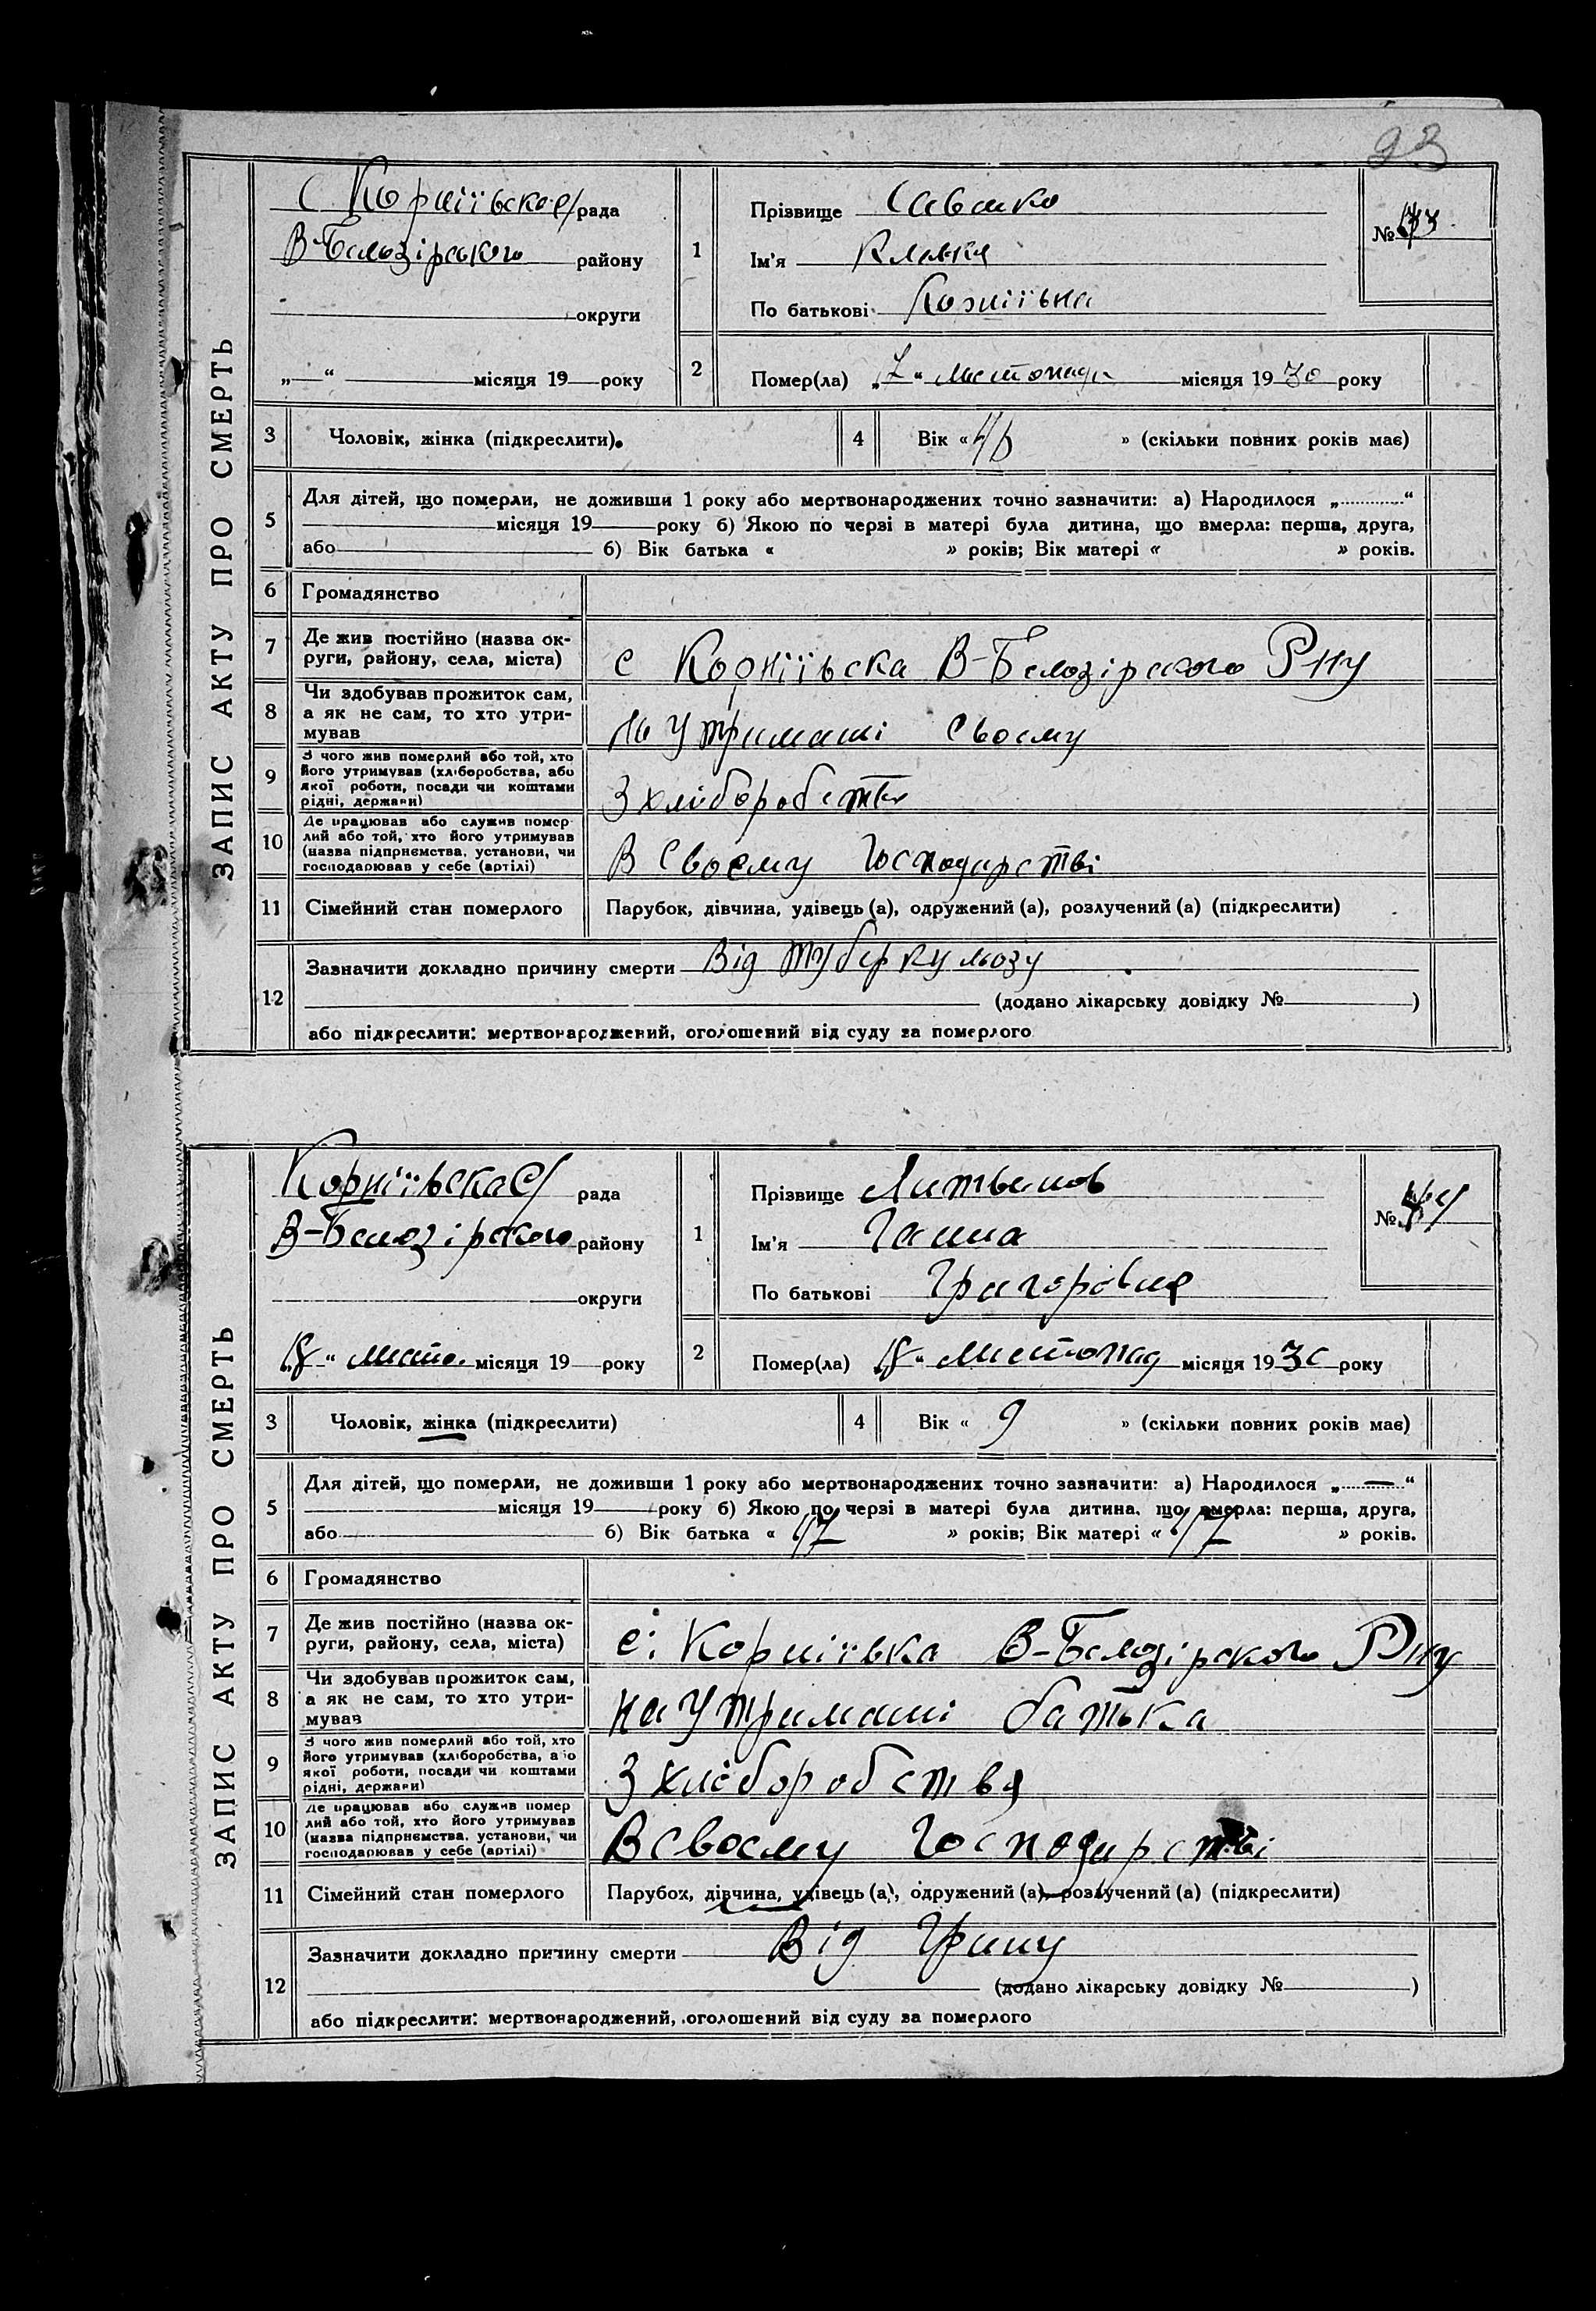 93
ЗАПИС АКТУ ПРО СМЕРТЬ
С Корніївська С/рада
В-Белозірського району
округи
„—“ місяця 19 року
1
Прізвище Савенко
Ім'я
По батькові Корніївна
№
2
Помер(ла) „7“ листопада місяця 1930 року
3
Чоловік, жінка (підкреслити).
4
Вік « » (скільки повних років має)
5
Для дітей, що померли, не доживши 1 року або мертвонароджених точно зазначити: а) Народилося „ “
місяця 19 року б) Якою по черзі в матері була дитина, що вмерла: перша, друга,
або б) Вік батька « » років; Вік матері « » років.
6
Громадянство
7
Де жив постійно (назва ок-
руги, району, села, міста)
с Корніївска В-Белозірского Р-ну
8
Чи здобував прожиток сам,
а як не сам, то хто утри-
мував
на утриманні своєму
9
З чого жив померлий або той, хто
його утримував (хліборобства, або
якої роботи, посади чи коштами
рідні, держави)
З хліборобства
10
Де працював або служив помер-
лий або той, хто його утримував
(назва підприємства, установи, чи
господарював у себе (артілі)
В своєму господарстві
11
Сімейний стан померлого
Парубок, дівчина, удівець (а), одружений (а), розлучений (а) (підкреслити)
12
Зазначити докладно причину смерти Від туберкульозу
(додано лікарську довідку № )
або підкреслити: мертвонароджений, оголошений від суду за померлого
ЗАПИС АКТУ ПРО СМЕРТЬ
Корніївська С/ рада
В-Белозірского району
округи
листо. місяця 19 року
1
Прізвище Литвинов
Ім'я Ганна
По батькові Григоровна
№
2
Помер(ла) листопад місяця 1930 року
3
Чоловік, жінка (підкреслити)
4
Вік « 9 » (скільки повних років має)
5
Для дітей, що померли, не доживши 1 року або мертвонароджених точно зазначити: а) Народилося „—“
місяця 19 року б) Якою по черзі в матері була дитина, що вмерла: перша, друга,
або б) Вік батька « 47 » років; Вік матері « 47 » років.
6
Громадянство
7
Де жив постійно (назва ок-
руги, району, села, міста)
с. Корніївка В-Белозірского Р-ну
8
Чи здобував прожиток сам,
а як не сам, то хто утри-
мував
на утриманні батька
9
З чого жив померлий або той, хто
його утримував (хліборобства, або
якої роботи, посади чи коштами
рідні, держави)
З хліборобства
10
Де працював або служив помер
лий або той, хто його утримував
(назва підприємства, установи, чи
господарював у себе (артілі)
В своєму господарстві
11
Сімейний стан померлого
Парубок, дівчина, удівець (а), одружений (а), розлучений (а) (підкреслити)
12
Зазначити докладно причину смерти Від Грипу
(додано лікарську довідку № )
або підкреслити: мертвонароджений, оголошений від суду за померлого